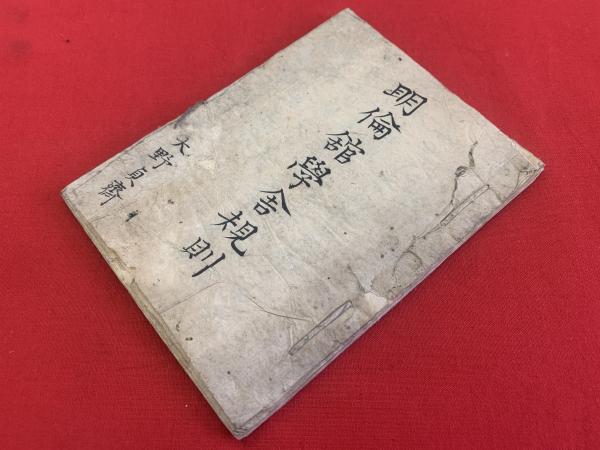 明倫舘學舎規則
大野貞齋